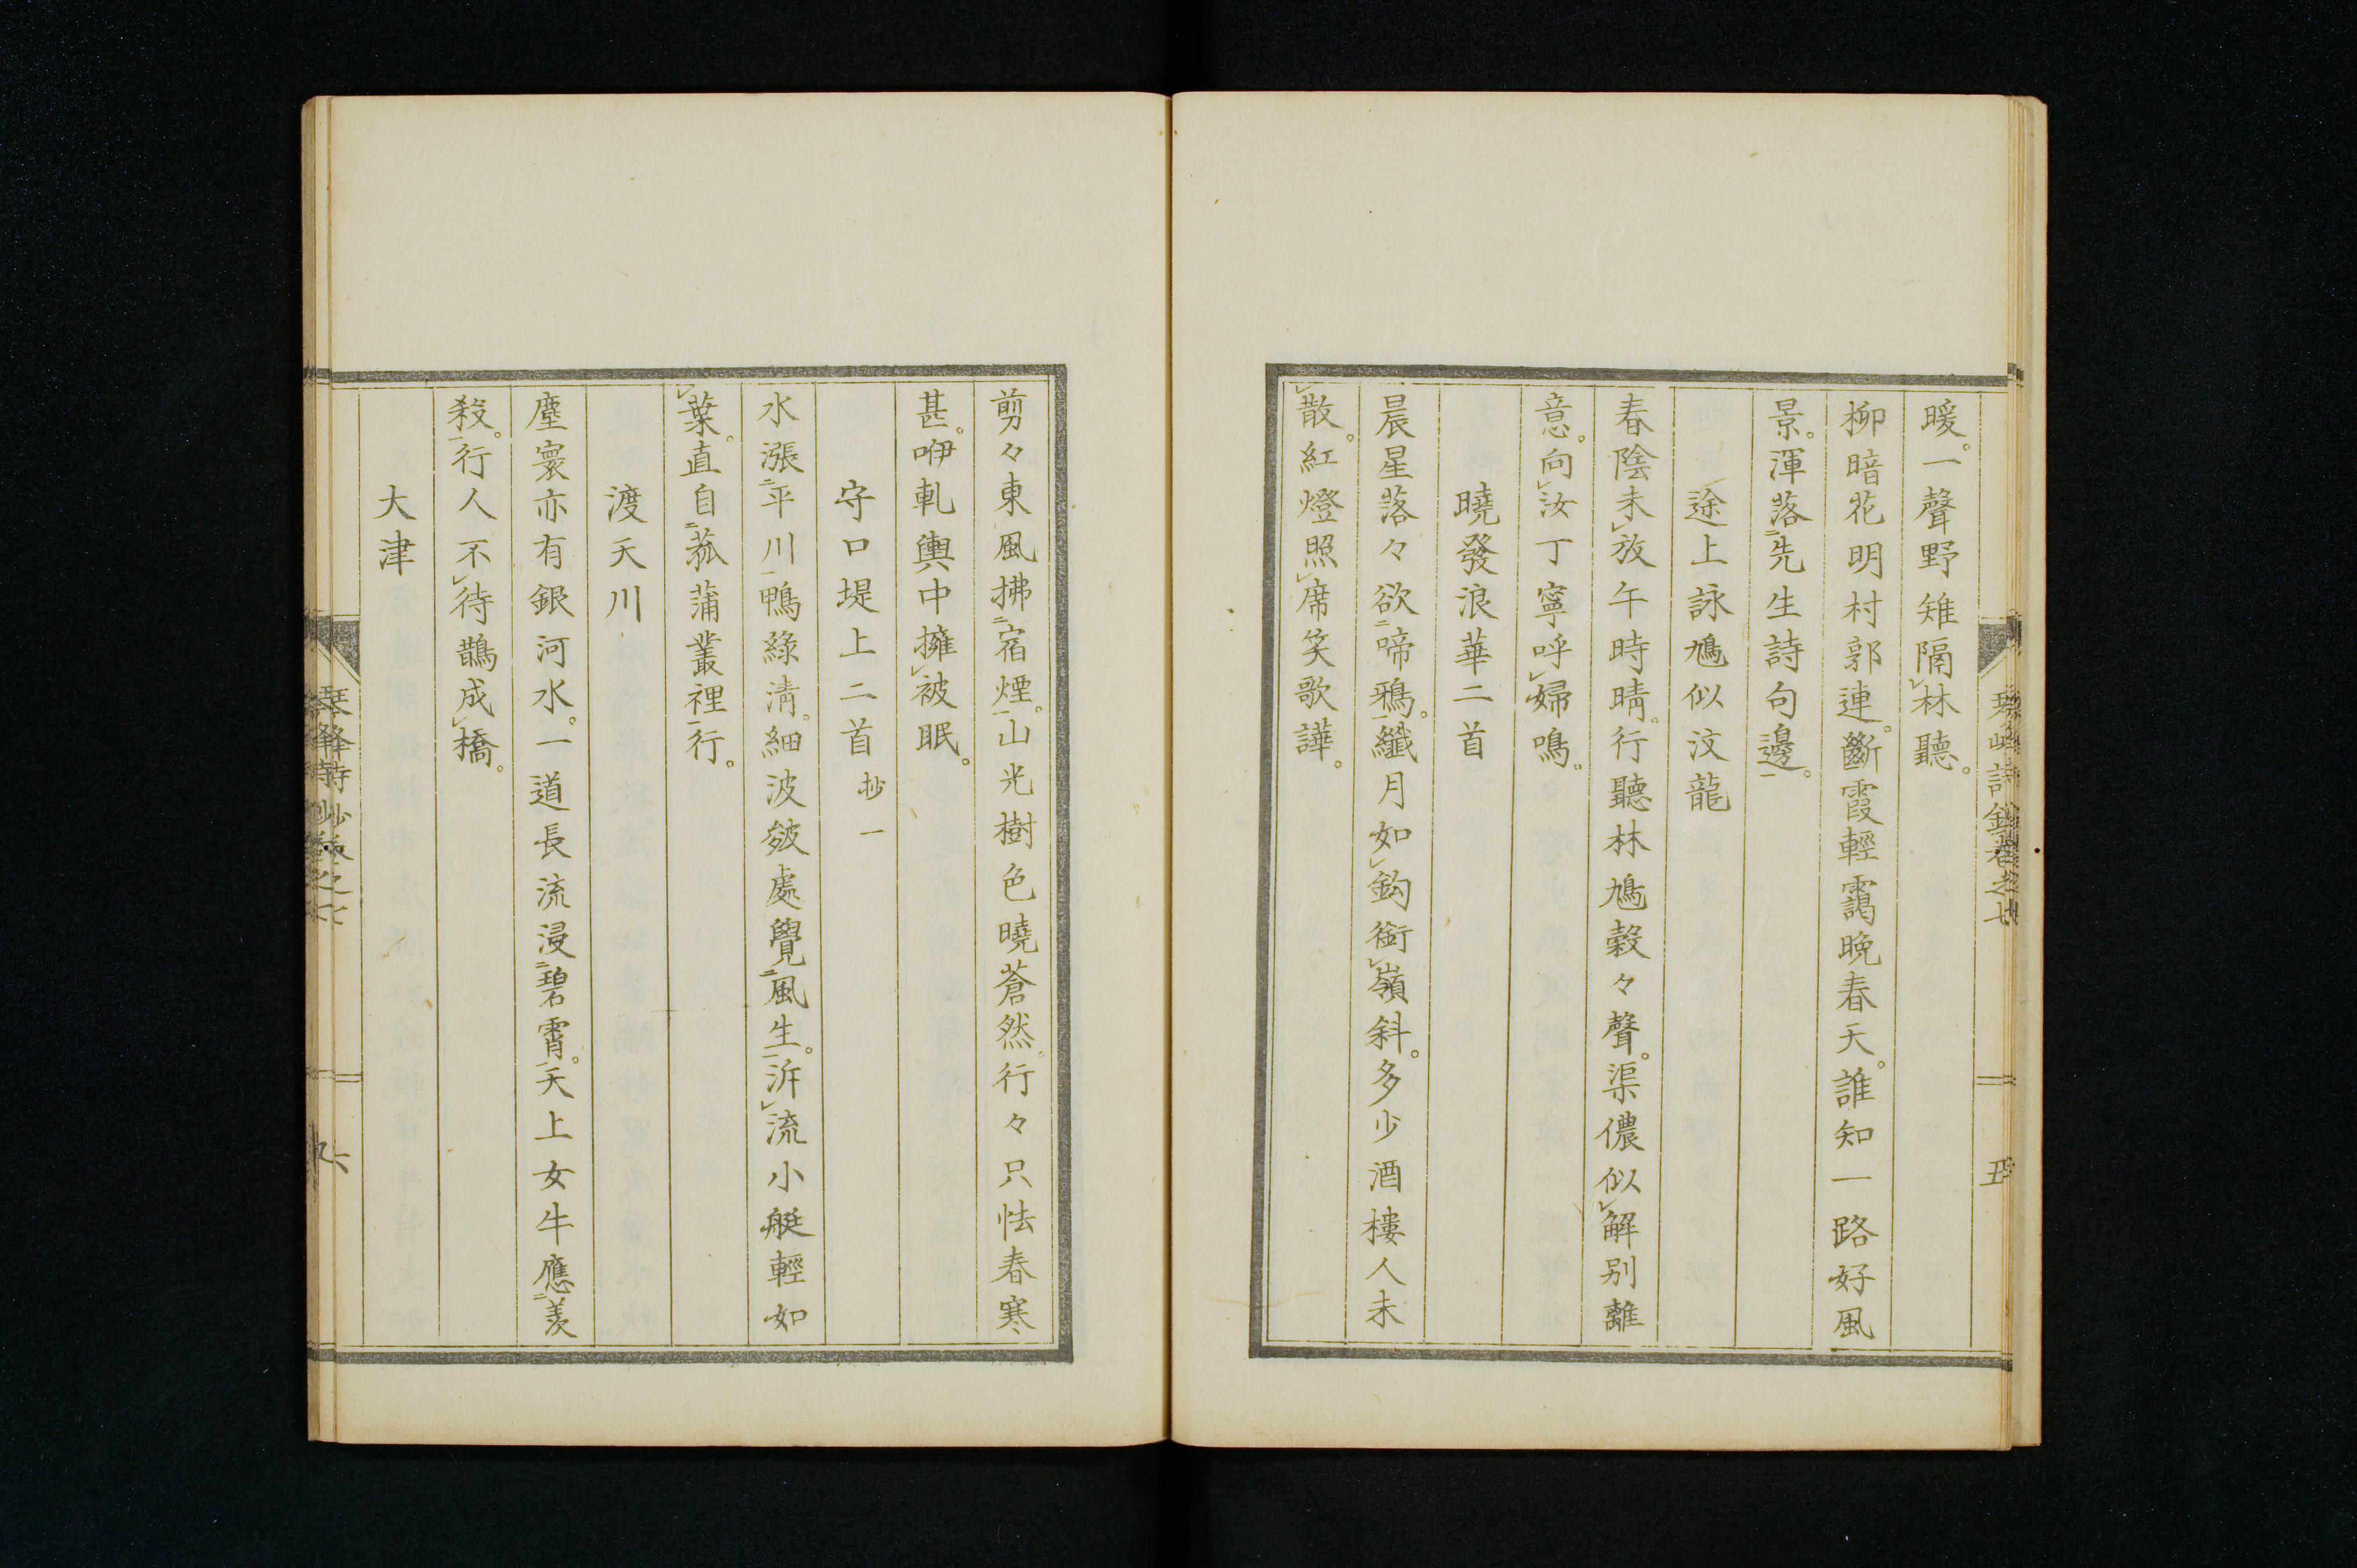 暖。一聲野雉隔㆑林聽。
柳暗花明村郭連。斷霞輕靄晚春天。誰知一路好風
景。渾落㆓先生詩句邊㆒。
途上詠鳩似汶龍
春陰未㆑放午時晴。行聽林鳩穀々聲。渠儂似㆑解別離
意。向㆑汝丁寧呼㆑婦鳴。
曉發浪華二首
晨星落々欲㆓啼鴉㆒。纖月如㆑鈎銜㆑嶺斜。多少酒樓人未
㆑散。紅燈照㆑席笑歌譁。
五
剪々東風拂㆓宿煙㆒。山光樹色曉蒼然。行々只怯春寒
甚。咿軋輿中擁㆑被眠。
守口堤上二首 抄一
水漲㆓平川㆒鴨綠淸。細波皴處覺㆓風生㆒。泝㆑流小艇輕如
㆑葉。直自㆓菰蒲叢裡㆒行。
渡天川
塵寰亦有銀河水。一道長流浸㆓碧霄㆒。天上女牛應㆓羨
殺㆒。行人不㆑待鵲成㆑橋。
大津
琴峰詩鈔卷之七
六